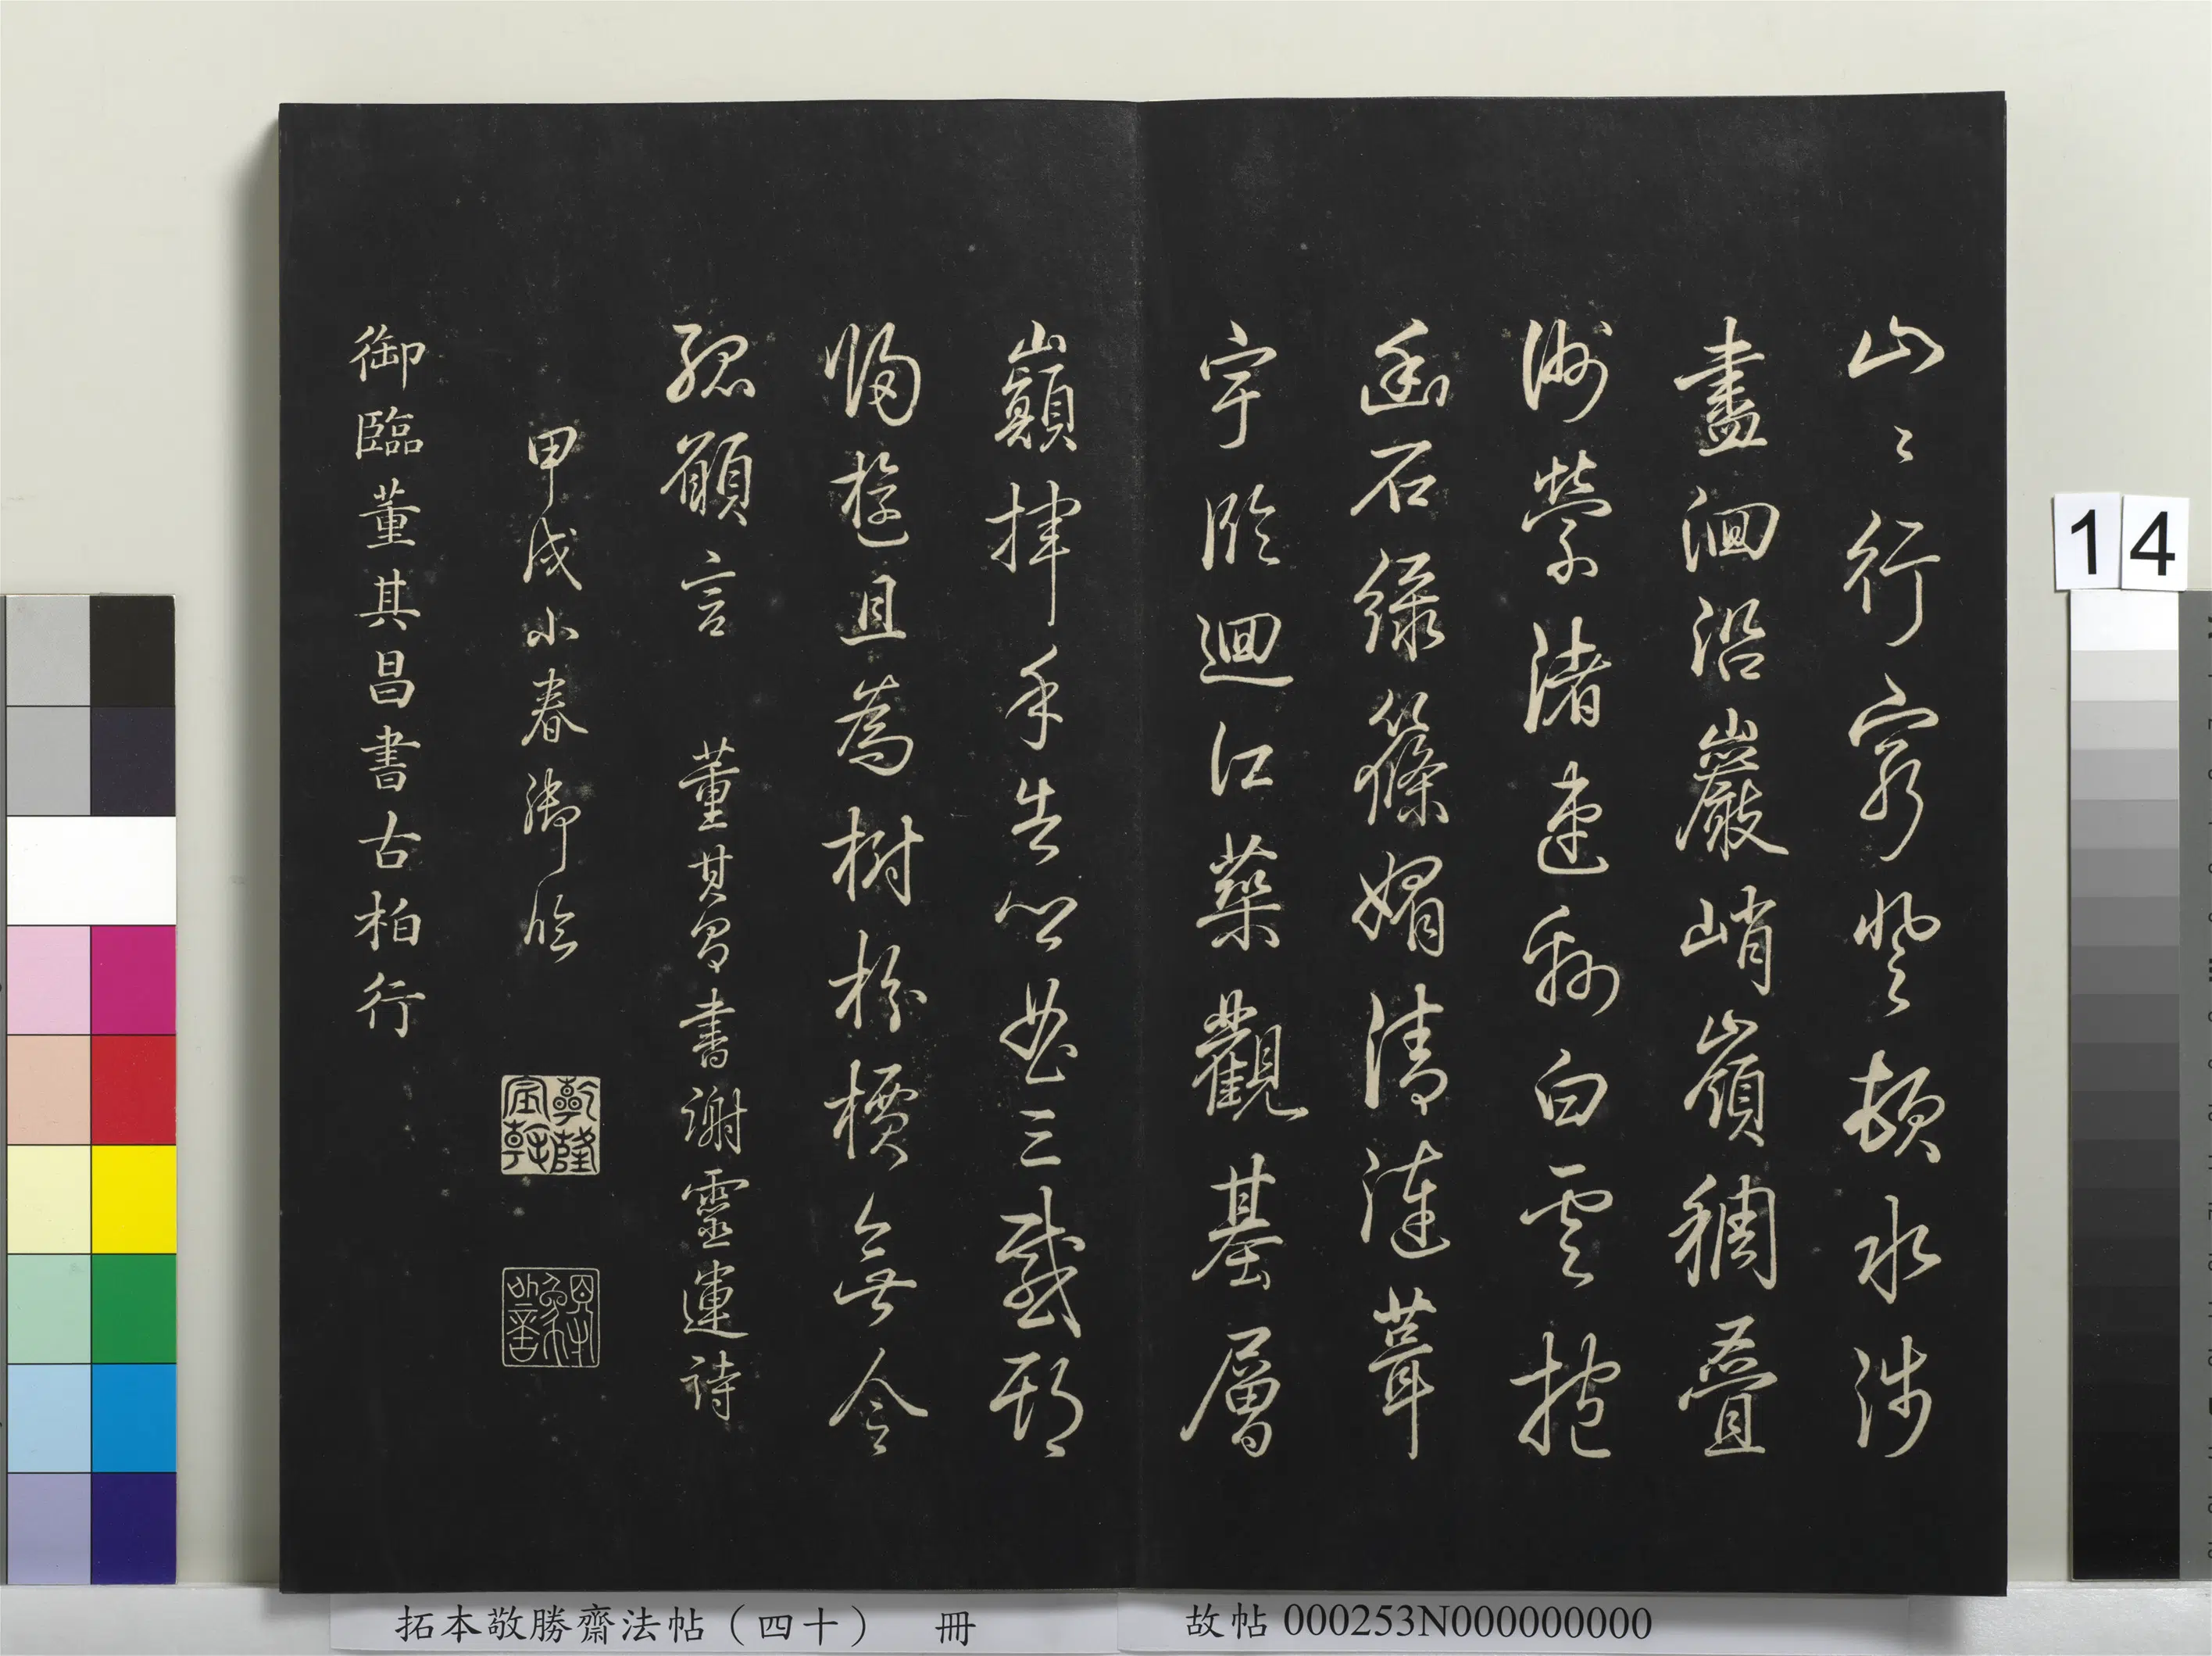 山〻行窮登頓水涉
盡洄沿巖峭嶺稠疊
洲縈渚連綿白雲抱
幽石綠篠媚清漣葺
宇臨迴江築觀基層
巔揮手告鄉曲三載期
歸旋且為樹枌檟無令
孤願言 董其昌書謝靈運詩
甲戌小春御臨
乾隆宸翰
御臨董其昌書古柏行
14
拓本敬勝齋法帖（四十） 冊
故帖000253N000000000